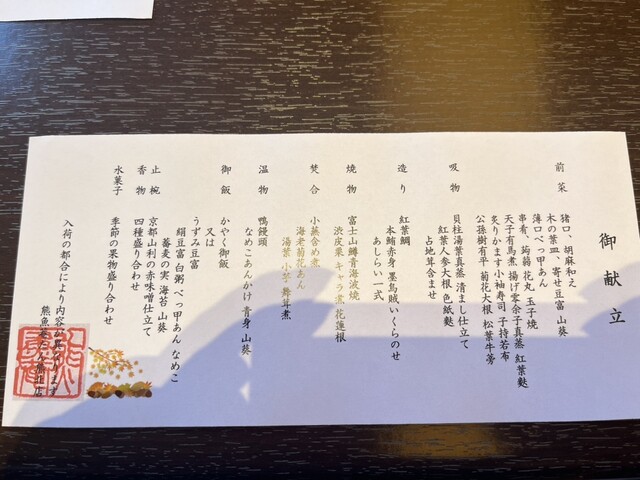 御献立
前菜
猪口、胡麻和え
木の葉皿、寄せ豆富 山葵
薄口べっ甲あん
串肴、蒟蒻 花丸 玉子焼
天子有馬煮 揚げ零余子真蒸 紅葉麩
炙りかます小袖寿司 子持若布
公孫樹有平 菊花大根 松葉牛蒡
吸物
貝柱湯葉真蒸 清まし仕立て
紅葉人参大根 色紙麩
占地茸含ませ
造り
紅葉鯛
本鮪赤身 墨烏賊 いくらのせ
あしらい一式
焼物
富士山鱒青海波焼
渋皮栗 キャラ蕗 花蓮根
焚合
小蕪含め煮
海老菊花あん
湯葉 小芋 舞茸煮
温物
鴨饅頭
なめこあんかけ 青身 山葵
御飯
かやく御飯
又は
うずみ豆富
絹豆富 白粥 べっ甲あん なめこ
蕎麦の実 海苔 山葵
止椀
京都山利の赤味噌仕立て
香物
四種盛り合わせ
水菓子
季節の果物盛り合わせ
入荷の都合により内容
ます
熊魚菴たん熊北店